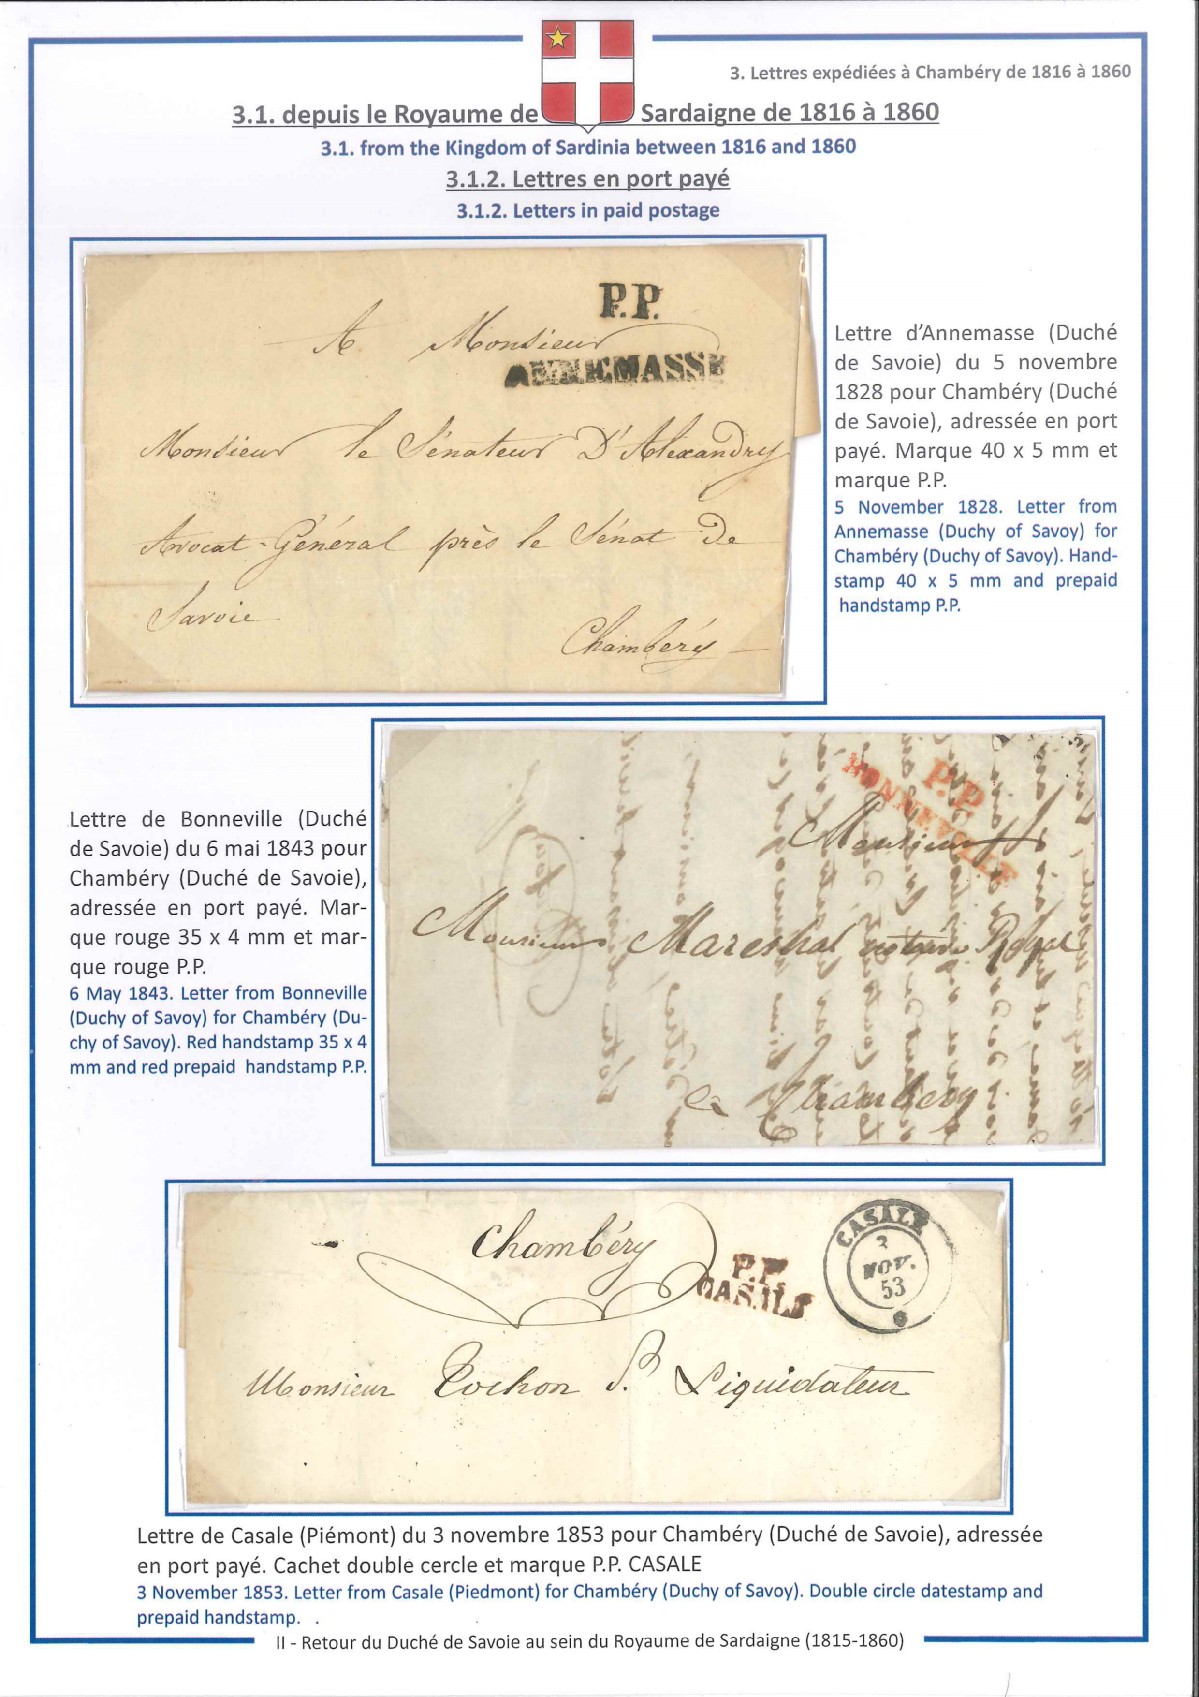 3. Lettres expédiées à Chambéry de 1816 à 1860
3.1. depuis le Royaume de Sardaigne de 1816 à 1860
3.1. from the Kingdom of Sardinia between 1816 and 1860
3.1.2. Lettres en port payé
3.1.2. Letters in paid postage
P.P.
A Monsieur
ANNEMASSE
Monsieur le Sénateur D'Alexandry
Avocat-Général près le Sénat de
Savoie
Chambéry
Lettre d'Annemasse (Duché
de Savoie) du 5 novembre
1828 pour Chambéry (Duché
de Savoie), adressée en port
payé. Marque 40 x 5 mm et
marque P.P.
5 November 1828. Letter from
Annemasse (Duchy of Savoy) for
Chambéry (Duchy of Savoy). Hand-
stamp 40 x 5 mm and prepaid
handstamp P.P.
Lettre de Bonneville (Duché
de Savoie) du 6 mai 1843 pour
Chambéry (Duché de Savoie),
adressée en port payé. Mar-
que rouge 35 x 4 mm et mar-
que rouge P.P.
6 May 1843. Letter from Bonneville
(Duchy of Savoy) for Chambéry (Du-
chy of Savoy). Red handstamp 35 x 4
mm and red prepaid handstamp P.P.
P.P.
BONNEVILLE
Monsieur
Monsieur Mareshal notaire Royal
a Chambery
Chambéry
P.P.
CASALE
CASALE
3
NOV.
53
Monsieur Rochon Liquidateur
Lettre de Casale (Piémont) du 3 novembre 1853 pour Chambéry (Duché de Savoie), adressée
en port payé. Cachet double cercle et marque P.P. CASALE
3 November 1853. Letter from Casale (Piedmont) for Chambéry (Duchy of Savoy). Double circle datestamp and
prepaid handstamp.
II - Retour du Duché de Savoie au sein du Royaume de Sardaigne (1815-1860)